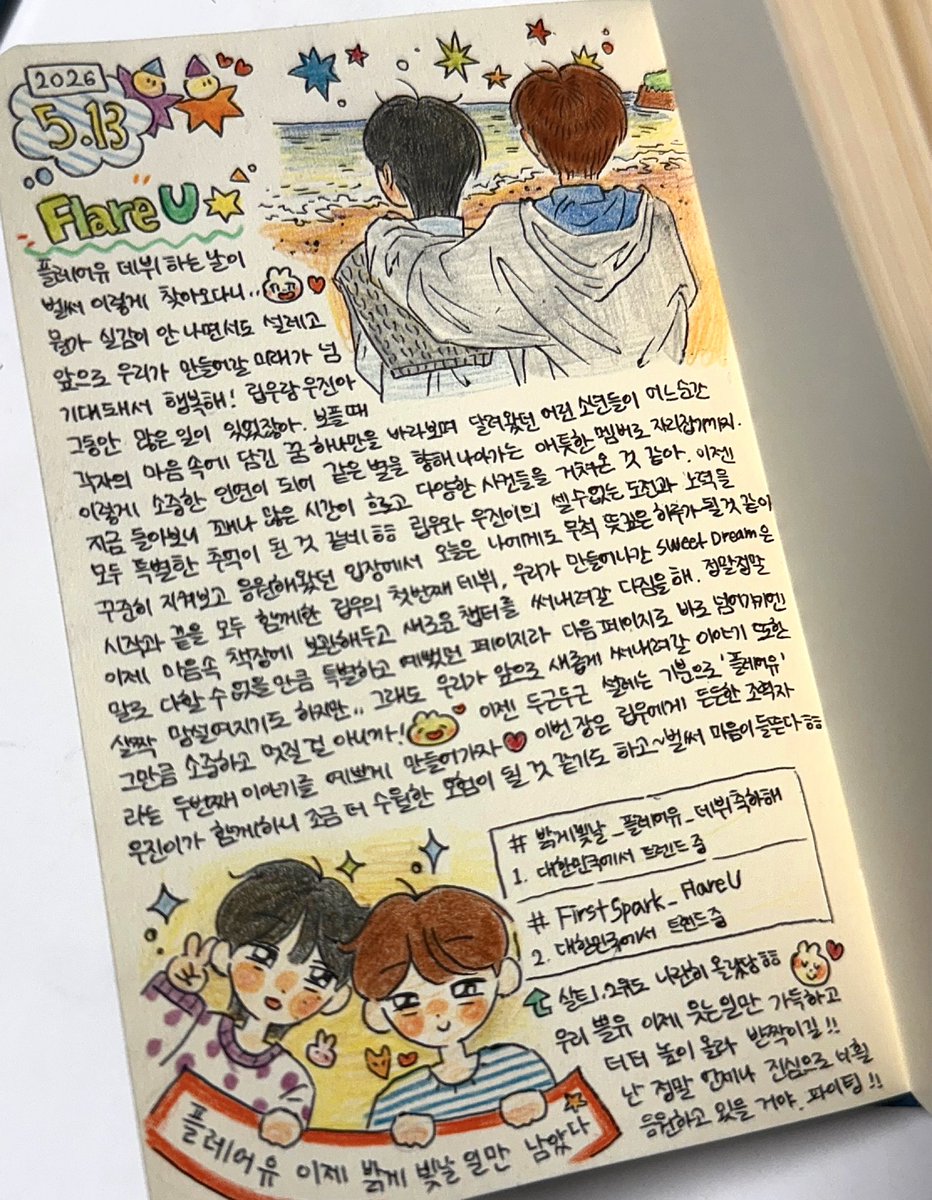 2026
5.13
Flare U
플레어유 데뷔 하는 날이
벌써 이렇게 찾아오다니..
뭔가 실감이 안 나면서도 설레고
앞으로 우리가 만들어갈 미래가 넘
기대돼서 행복해! 립우랑 우진아
그동안 많은 일이 있었잖아. 보플때
각자의 마음 속에 담긴 꿈 하나만을 바라보며 달려왔던 어린 소년들이 어느순간
이렇게 소중한 인연이 되어 같은 별을 향해 나아가는 애틋한 멤버로 자리잡기까지.
지금 돌아보니 꽤나 많은 시간이 흐르고 다양한 사건들을 거쳐온 것 같아. 이젠
모두 특별한 추억이 된 것 같네ㅎㅎ 립우와 우진이의 셀 수 없는 도전과 노력을
꾸준히 지켜보고 응원해왔던 입장에서 오늘은 나에게도 무척 뜻깊은 하루가 될 것 같아
시작과 끝을 모두 함께한 립우의 첫번째 데뷔, 우리가 만들어나간 sweet Dream은
이제 마음속 책장에 보관해두고 새로운 챕터를 써내려갈 다짐을 해. 정말정말
말로 다할 수 없을 만큼 특별하고 예뻤던 페이지라 다음 페이지로 바로 넘어가기엔
살짝 망설여지기도 하지만.. 그래도 우리가 앞으로 새롭게 써내려갈 이야기 또한
그만큼 소중하고 멋질 걸 아니까! 이젠 두근두근 설레는 기분으로 '플레어유'
라는 두번째 이야기를 예쁘게 만들어가자 이번 장은 립우에게 든든한 조력자
우진이가 함께하니 조금 더 수월한 모험이 될 것 같기도 하고~벌써 마음이 들뜬다ㅎㅎ
# 밝게빛날_플레어유_데뷔축하해
1. 대한민국에서 트렌드 중
# First Spark_FlareU
2. 대한민국에서 트렌드 중
실트1,2위도 나란히 올랐당ㅎㅎ
우리 쁠유 이제 웃는일만 가득하고
더더 높이 올라 반짝이길!!
난 정말 언제나 진심으로
응원하고 있을 거야. 파이팅!!
플레어유 이제 밝게 빛날 일만 남았다